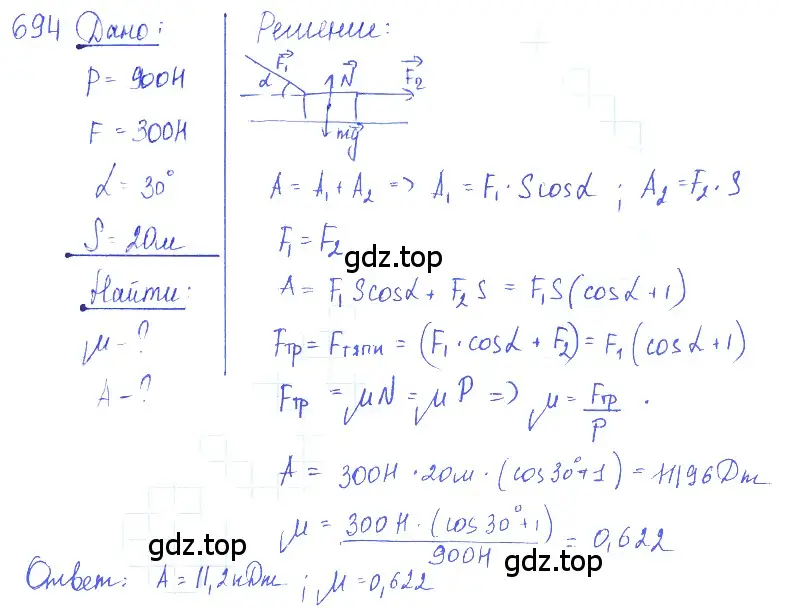 694 Дано: Решение:
P = 900Н
F = 300Н
α = 30°
S = 20м
Найти:
μ - ?
A - ?
F₁ α N F₂
mg
A = A₁ + A₂ => A₁ = F₁ · S cosα ; A₂ = F₂ · S
F₁ = F₂
gdz.top
A = F₁ S cosα + F₂ S = F₁ S (cosα + 1)
Fтр = Fтяги = (F₁ · cosα + F₂) = F₁ (cosα + 1)
Fтр = μN = μP => μ = Fтр / P .
A = 300Н · 20м · (cos30° + 1) = 11196 Дж
μ = 300Н · (cos30° + 1) / 900Н = 0,622
gdz.top gdz.top
Ответ: A = 11,2 кДж ; μ = 0,622